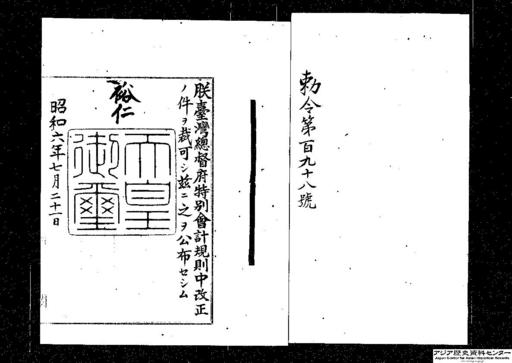 勅令第百九十八號
朕臺灣總督府特別會計規則中改正
ノ件ヲ裁可シ茲ニ之ヲ公布セシム
裕仁
天皇御璽
昭和六年七月二十一日
アジア歴史資料センター
Japan Center for Asian Historical Records